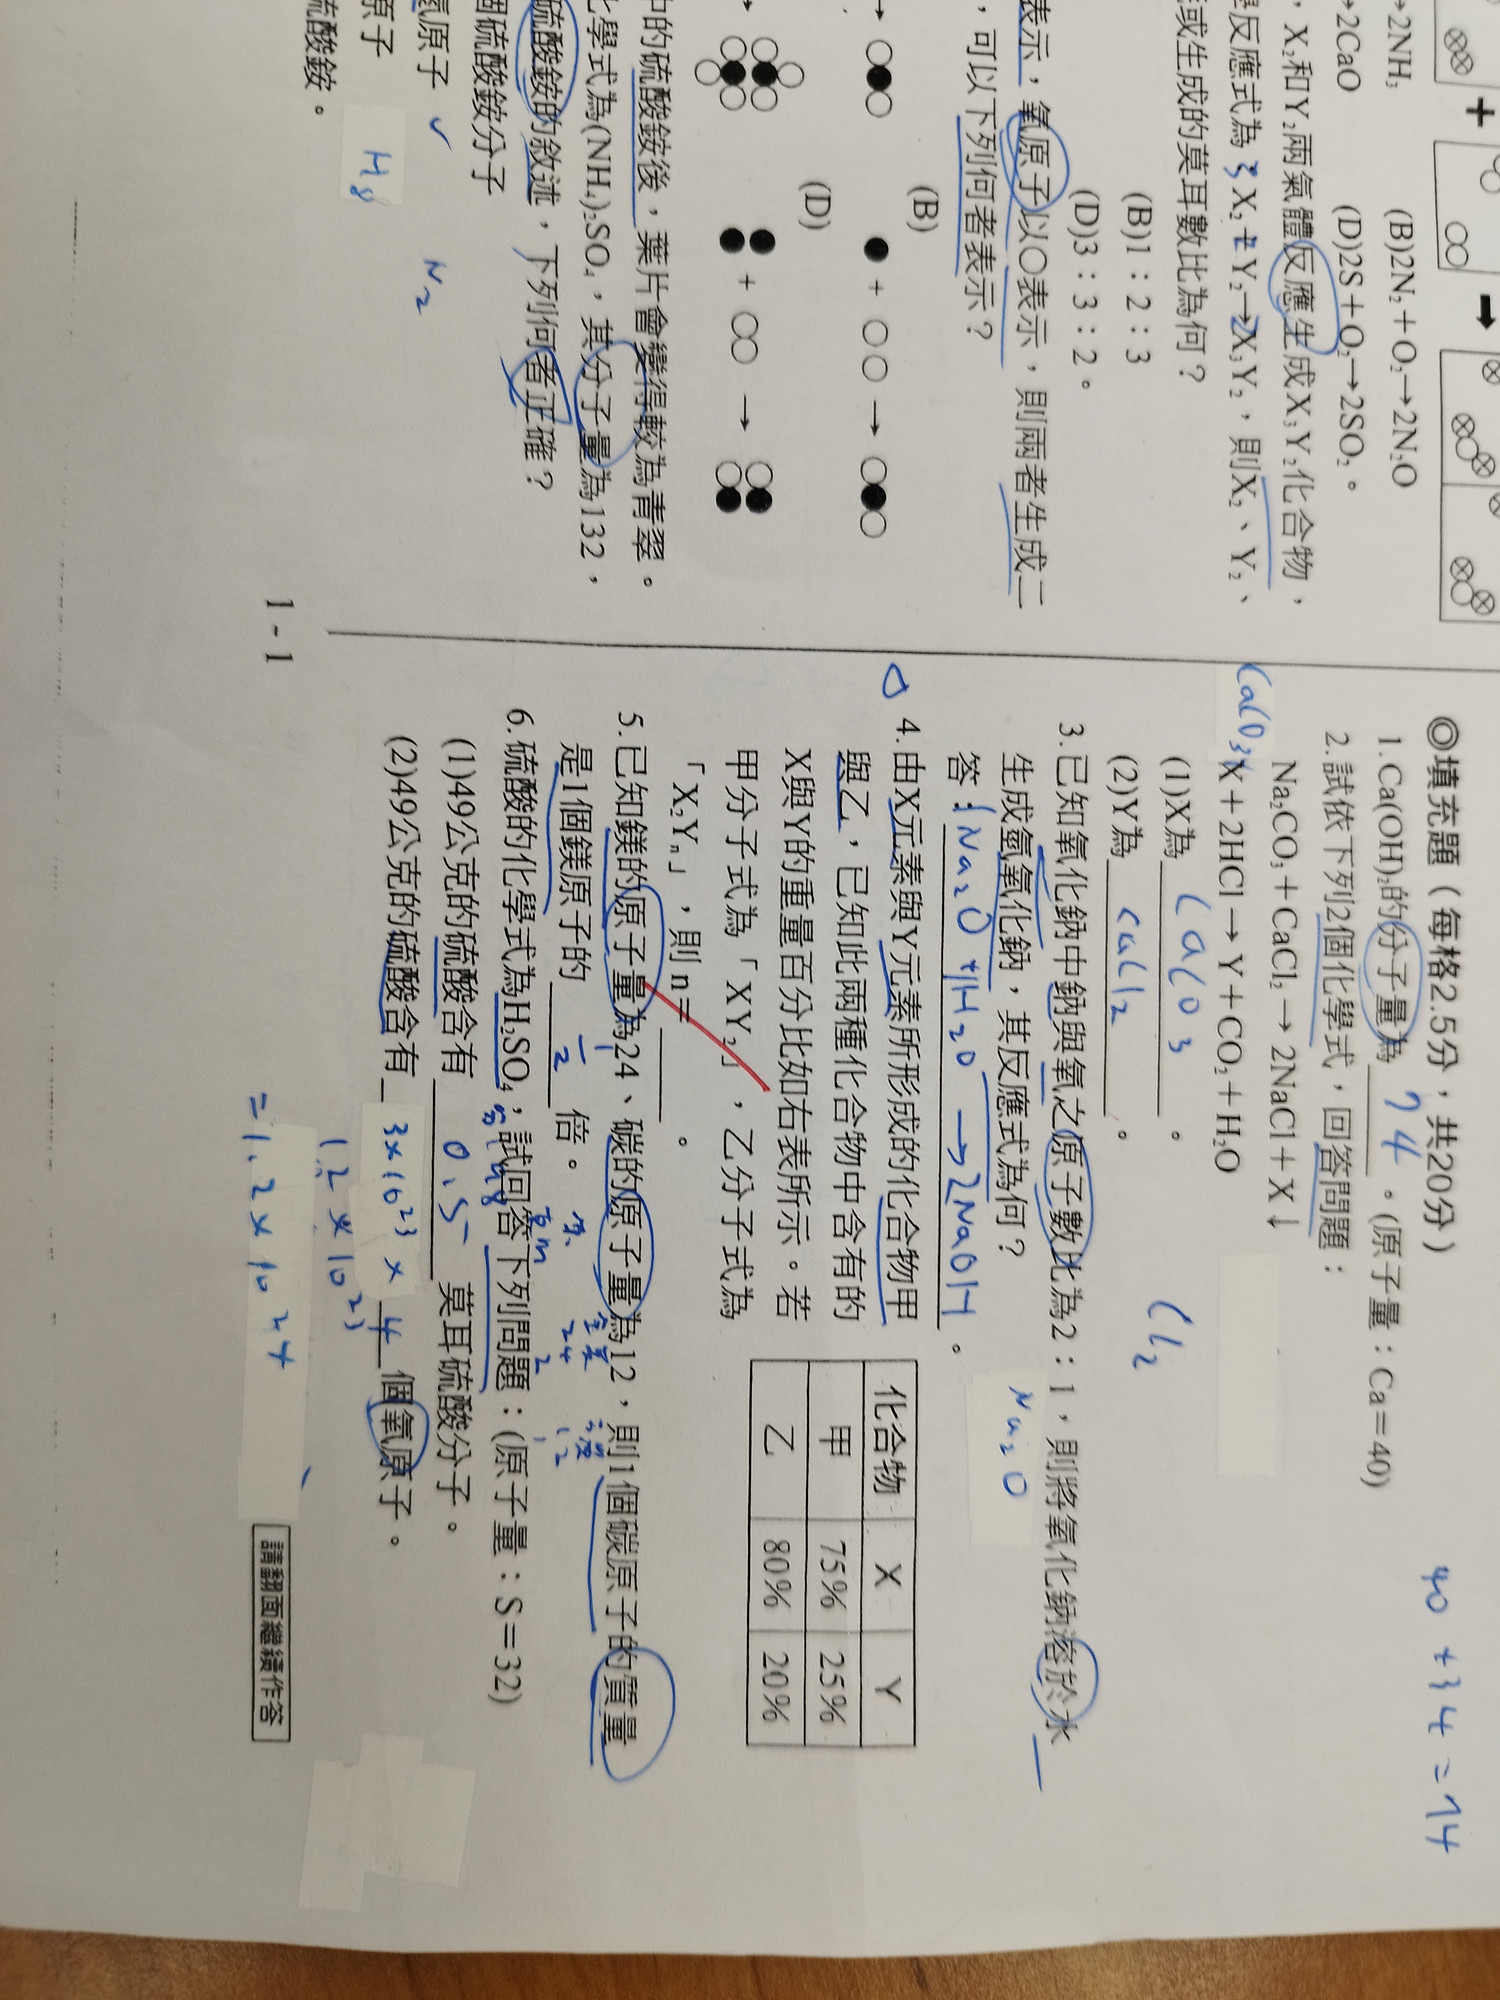 →2NH₃ (B)2N₂+O₂→2N₂O
→2CaO (D)2S+O₂→2SO₂。
,X₂和Y₂兩氣體反應生成X₃Y₂化合物,
反應式為 3 X₂+Y₂→2X₃Y₂,則X₂、Y₂、
或生成的莫耳數比為何?
(B)1:2:3
(D)3:3:2。
表示,氧原子以○表示,則兩者生成二
,可以下列何者表示?
(B)
(D)
中的硫酸銨後,葉片會變得較為青翠。
化學式為(NH₄)₂SO₄,其分子量為132,
硫酸銨的敘述,下列何者正確?
個硫酸銨分子
氮原子 ✓ N₂
原子 H₈
硫酸銨。
1 - 1
◎填充題(每格2.5分,共20分)
40+34=74
1.Ca(OH)₂的分子量為 74 。(原子量:Ca=40)
2.試依下列2個化學式,回答問題:
Na₂CO₃+CaCl₂→2NaCl+X↓
CaCO₃ X+2HCl→Y+CO₂+H₂O
(1)X為 CaCO3 。 Cl₂
(2)Y為 CaCl₂ 。
3.已知氧化鈉中鈉與氧之原子數比為2:1,則將氧化鈉溶於水
生成氫氧化鈉,其反應式為何? Na₂O
答: Na₂O+H₂O→2NaOH 。
4.由X元素與Y元素所形成的化合物甲
與乙,已知此兩種化合物中含有的
X與Y的重量百分比如右表所示。若
甲分子式為「XY₂」,乙分子式為
「X₂Yₙ」,則n= 。
化合物 X Y
甲 75% 25%
乙 80% 20%
5.已知鎂的原子量為24、碳的原子量為12,則1個碳原子的質量
是1個鎂原子的 1/2 倍。
6.硫酸的化學式為H₂SO₄,試回答下列問題:(原子量:S=32)
(1)49公克的硫酸含有 0.5 莫耳硫酸分子。
(2)49公克的硫酸含有 3×10²³×4 個氧原子。
12×10²³
=1.2×10²⁴
請翻面繼續作答